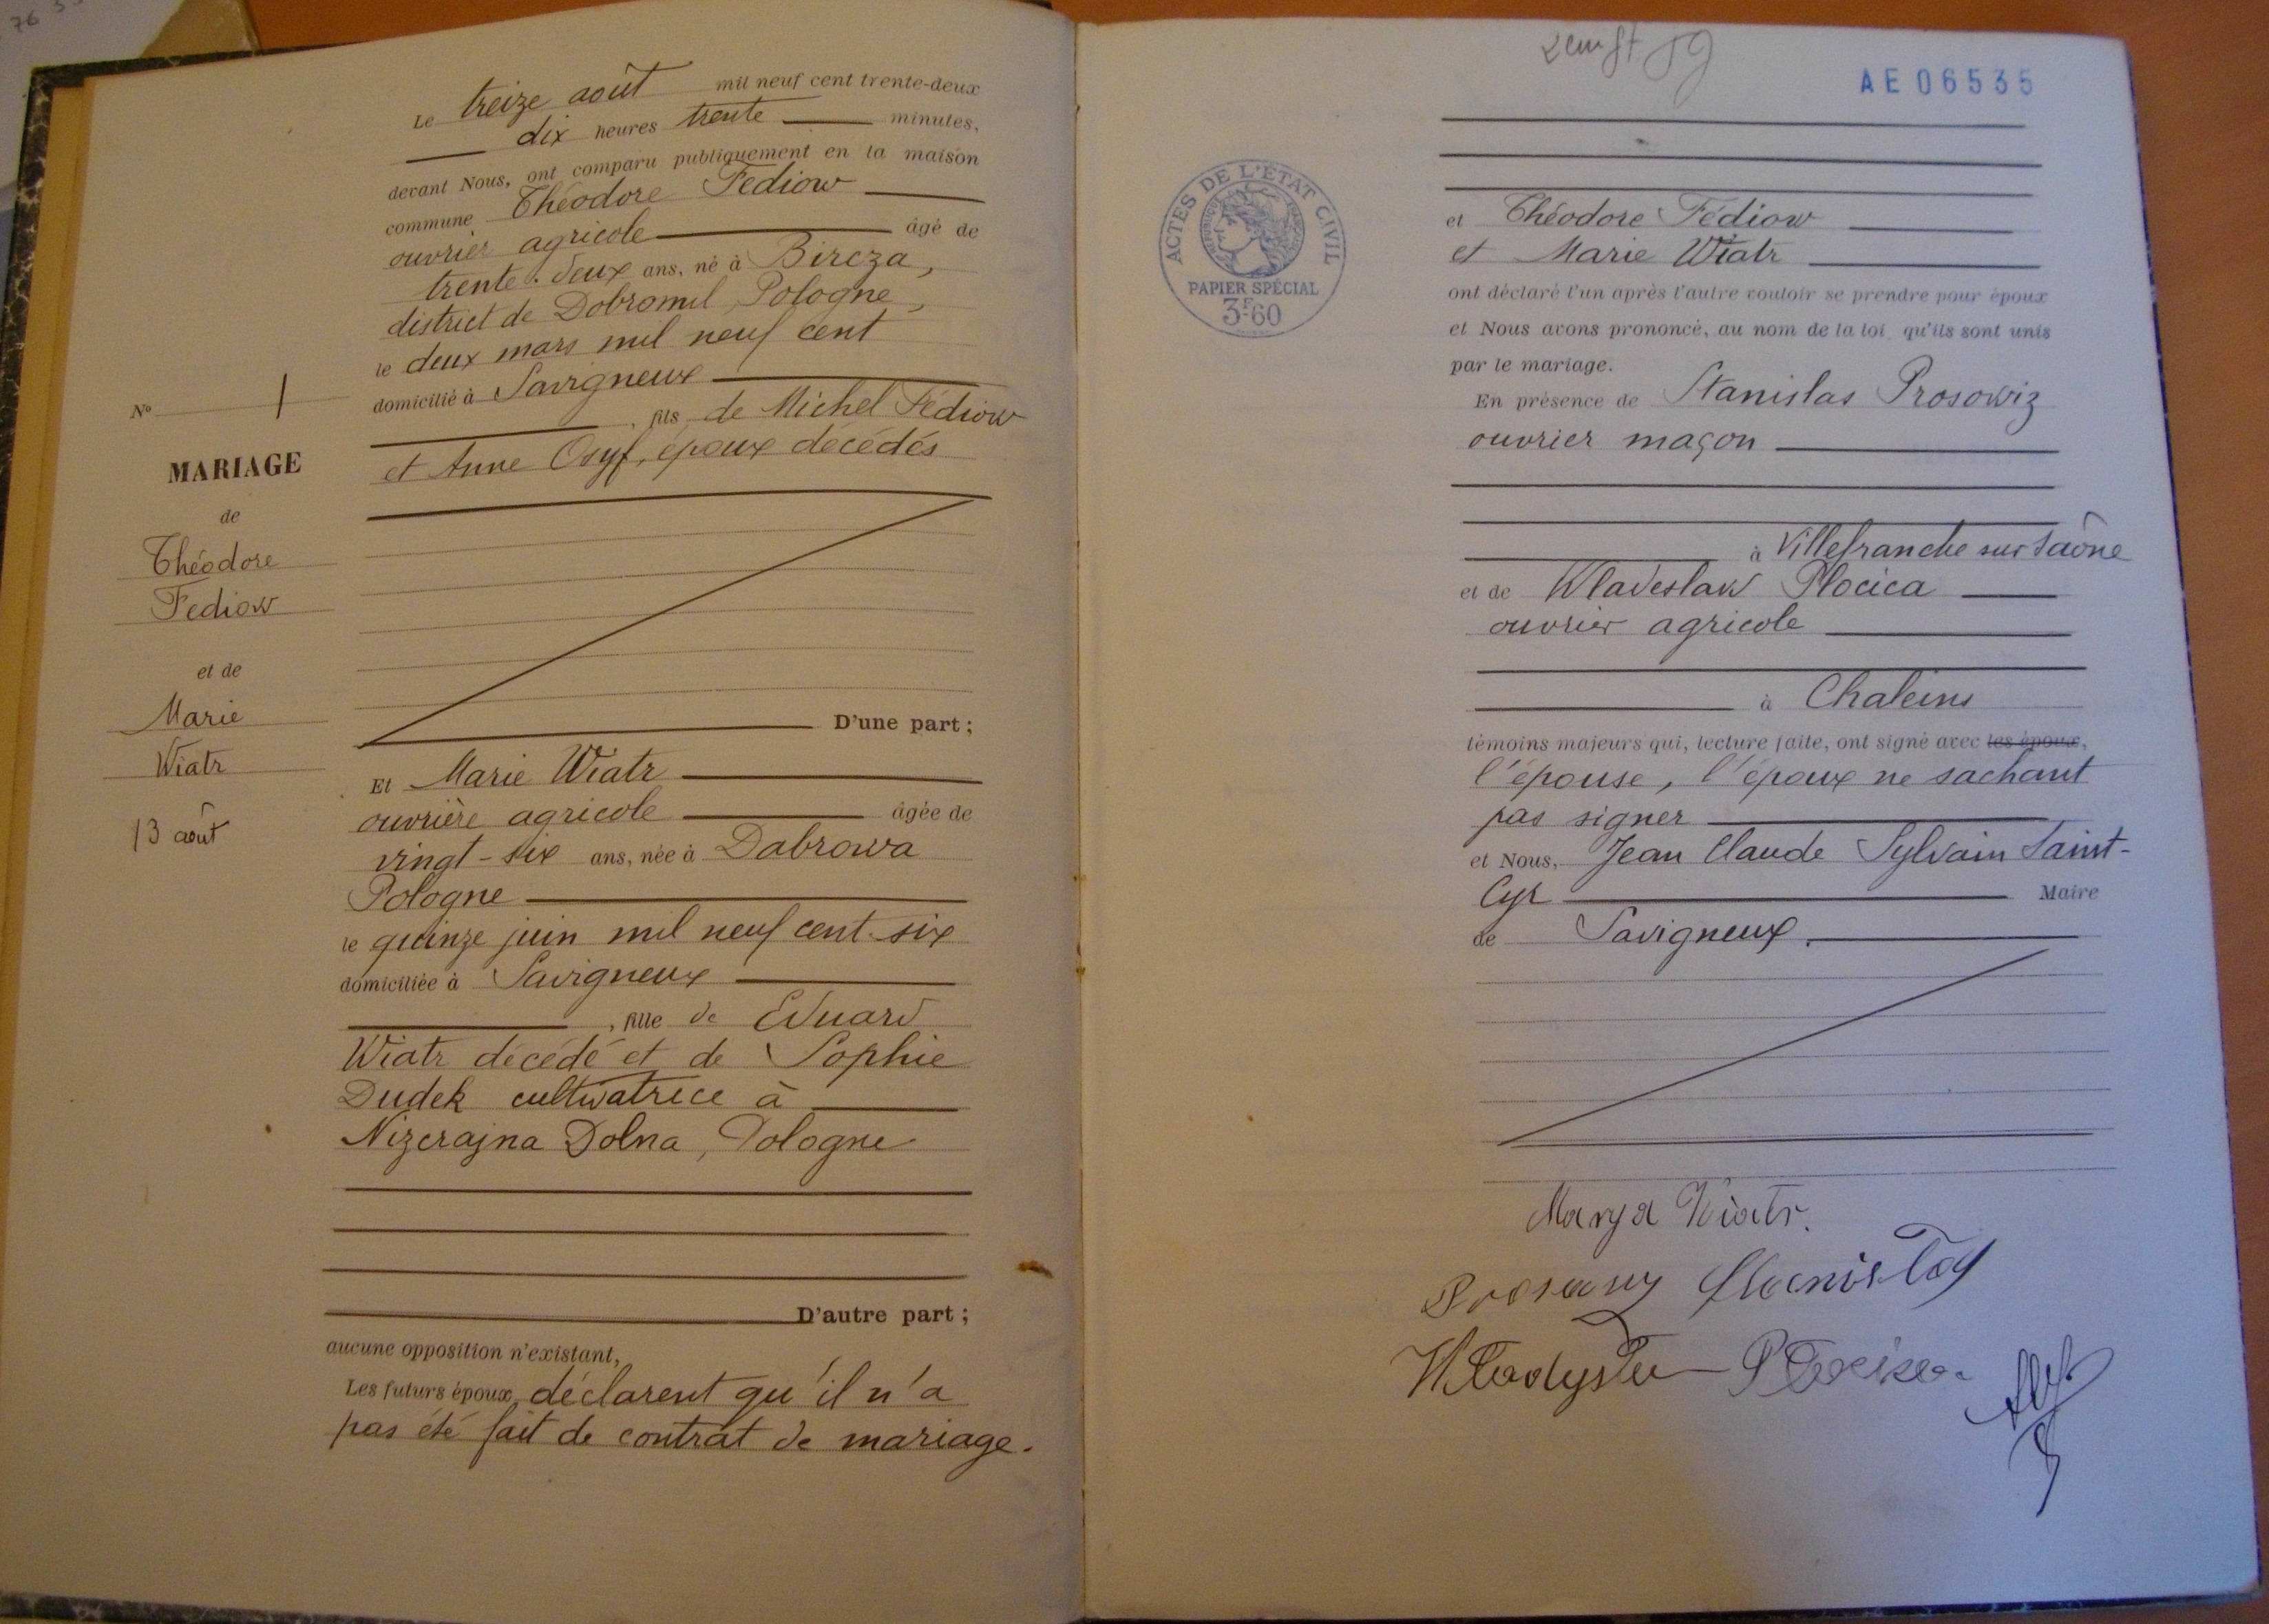 Le treize août mil neuf cent trente-deux
dix heures trente minutes,
devant Nous, ont comparu publiquement en la maison
commune Théodore Fediow
ouvrier agricole âgé de
trente-deux ans, né à Bircza,
district de Dobromil, Pologne,
le deux mars mil neuf cent
domicilié à Savigneux
, fils de Michel Fédiow
et Anne Osyf, époux décédés
D'une part;
N° 1
MARIAGE
de
Théodore
Fediow
et de
Marie
Wiatr
13 août
Et Marie Wiatr
ouvrière agricole âgée de
vingt-six ans, née à Dabrowa
Pologne
le quinze juin mil neuf cent-six
domiciliée à Savigneux
, fille de Eduard
Wiatr décédé et de Sophie
Dudek cultivatrice à
Nizcrajna Dolna, Pologne
D'autre part;
aucune opposition n'existant,
Les futurs époux déclarent qu'il n'a
pas été fait de contrat de mariage.
AE06535
ACTES DE L'ÉTAT CIVIL
RÉPUBLIQUE FRANÇAISE
PAPIER SPÉCIAL
3F60
et Théodore Fédiow
et Marie Wiatr
ont déclaré l'un après l'autre vouloir se prendre pour époux
et Nous avons prononcé, au nom de la loi, qu'ils sont unis
par le mariage.
En présence de Stanislas Prosowiz
ouvrier maçon
à Villefranche sur Saône
et de Wladeslaw Plocica
ouvrier agricole
à Chaleins
témoins majeurs qui, lecture faite, ont signé avec les époux,
l'épouse, l'époux ne sachant
pas signer
et Nous, Jean Claude Sylvain Saint-
Cyr Maire
de Savigneux.
Marya Wiatr.